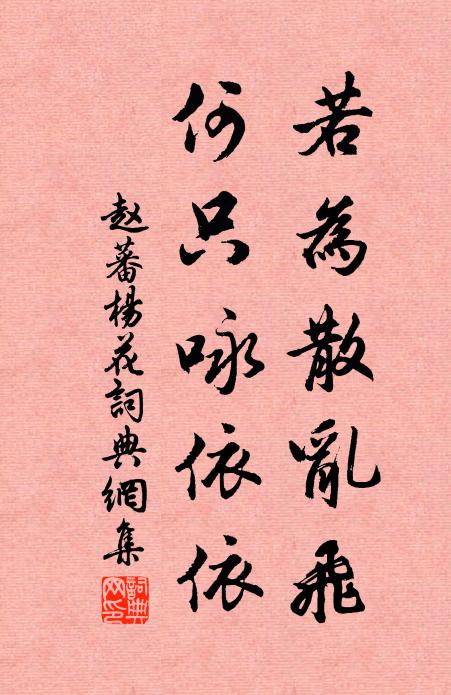 若為散亂飛
何只咏依依
赵蕃楊花詞典網集
詞典网印